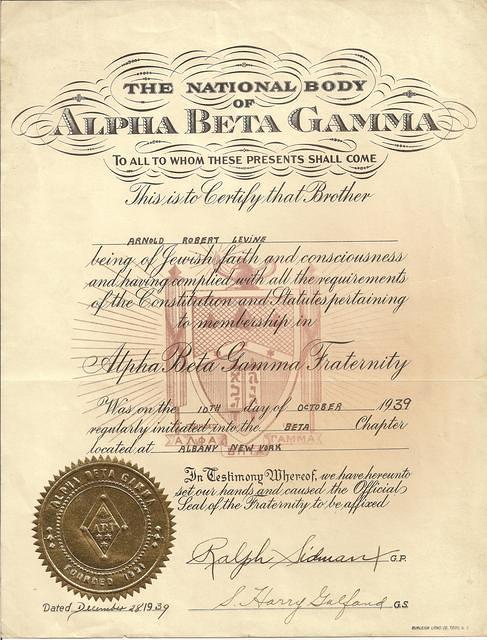 THE NATIONAL BODY
OF
ALPHA BETA GAMMA
TO ALL TO WHOM THESE PRESENTS SHALL COME
This is to Certify that Brother
ARNOLD ROBERT LEVINE
being of Jewish faith and consciousness
and having complied with all the requirements
of the Constitution and Statutes pertaining
to membership in
Alpha Beta Gamma Fraternity
Was on the 10TH day of OCTOBER 1939
regularly initiated into the BETA Chapter
located at ALBANY NEW YORK
In Testimony Whereof, we have hereunto
set our hands and caused the Official
Seal of the Fraternity to be affixed
ALPHA BETA GAMMA
ΑΒΓ
FOUNDED
Ralph Sidman G.P.
S. Harry Galfand G.S.
Dated December 28, 1939